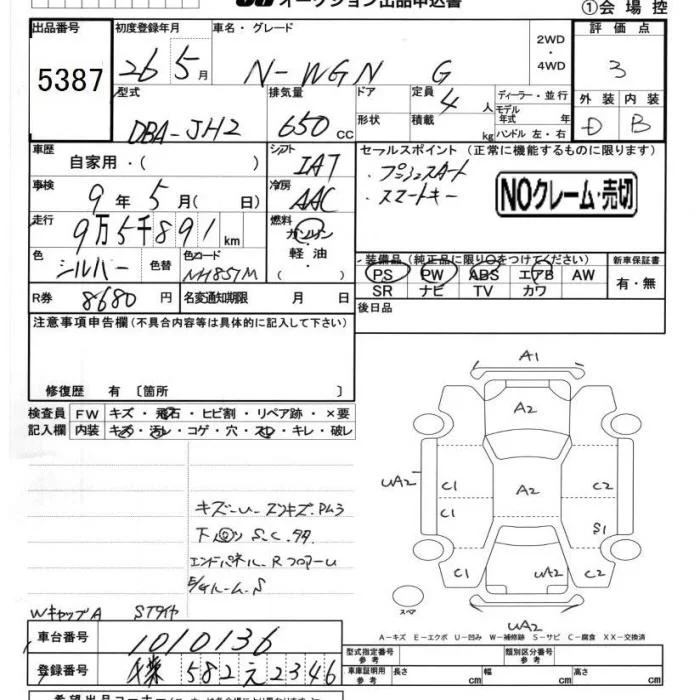 オークション出品申込書
①会場控
出品番号 5387
初度登録年月 26 5月
車名・グレード N-WGN G
2WD・4WD
評価点 3
外装 D 内装 B
型式 DBA-JH2
排気量 650 CC
ドア 形状
定員 4人
積載 kg
ディーラー・並行
モデル年式 年
ハンドル 左・右
車歴 自家用・( )
シフト IAT
セールスポイント (正常に機能するものに限ります)
・プッシュスタート
・スマートキー
NOクレーム・売切
車検 9年5月( 日)
冷房 AAC
走行 9万5千891km
燃料 ガソリン・軽油・( )
色 シルバー 色替 色コード NH857M
装備品 (純正品に限り○をつけてください)
PS PW ABS エアB AW
SR ナビ TV カワ
新車保証書 有・無
R券 8680円
名変通知期限 月 日
後日品
注意事項申告欄(不具合内容等は具体的に記入して下さい)
修復歴 有 〔箇所 〕
検査員記入欄
FW キズ・飛石・ヒビ割・リペア跡・×要
内装 キズ・汚レ・コゲ・穴・スレ・キレ・破レ
A1
A2
UA2 C1 A2 C2
C1 S1
C1 UA2 C2
スペア
UA2
WキャップA STタイヤ
A-キズ E-エクボ U-凹み W-補修跡 S-サビ C-腐食 XX-交換済
車台番号 1010136
登録番号 582 え 2346
型式指定番号 参考
類別区分番号 参考
車庫証明用 参考 長さ 幅 高さ
希望出品コーナー